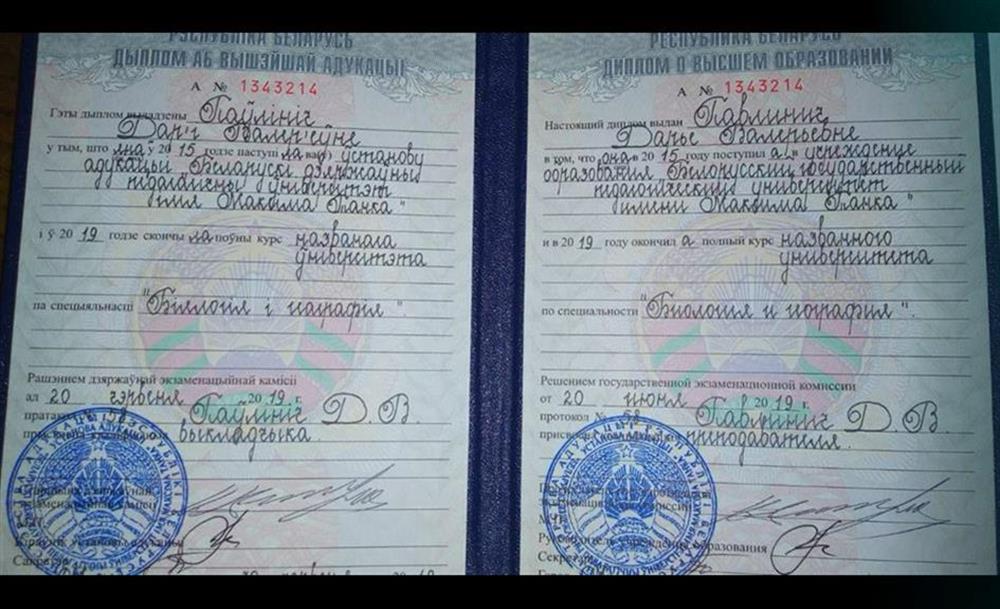 РЭСПУБЛІКА БЕЛАРУСЬ
ДЫПЛОМ АБ ВЫШЭЙШАЙ АДУКАЦЫІ
А № 1343214
Гэты дыплом выдадзены Паўлініч
Дар'і Валер'еўне
у тым, што яна ў 20 15 годзе паступі ла ва(ў) установу
адукацыі "Беларускі дзяржаўны
педагагічны ўніверсітэт
імя Максіма Танка"
і ў 20 19 годзе скончы ла поўны курс названага
ўніверсітэта
па спецыяльнасці "Біялогія і геаграфія"
Рашэннем дзяржаўнай экзаменацыйнай камісіі
ад 20 чэрвеня 20 19 г.
пратакол 58 Паўлініч Д. В
выкладчыка.
РЕСПУБЛИКА БЕЛАРУСЬ
ДИПЛОМ О ВЫСШЕМ ОБРАЗОВАНИИ
А № 1343214
Настоящий диплом выдан Павлинич
Дарье Валерьевне
в том, что она в 20 15 году поступил а в учреждение
образования "Белорусский государственный
педагогический университет
имени Максима Танка"
и в 20 19 году окончил а полный курс названного
университета
по специальности "Биология и география".
Решением государственной экзаменационной комиссии
от 20 июня 20 19 г.
протокол № 58 Павлинич Д. В
преподавателя.
Руководитель учреждения образования